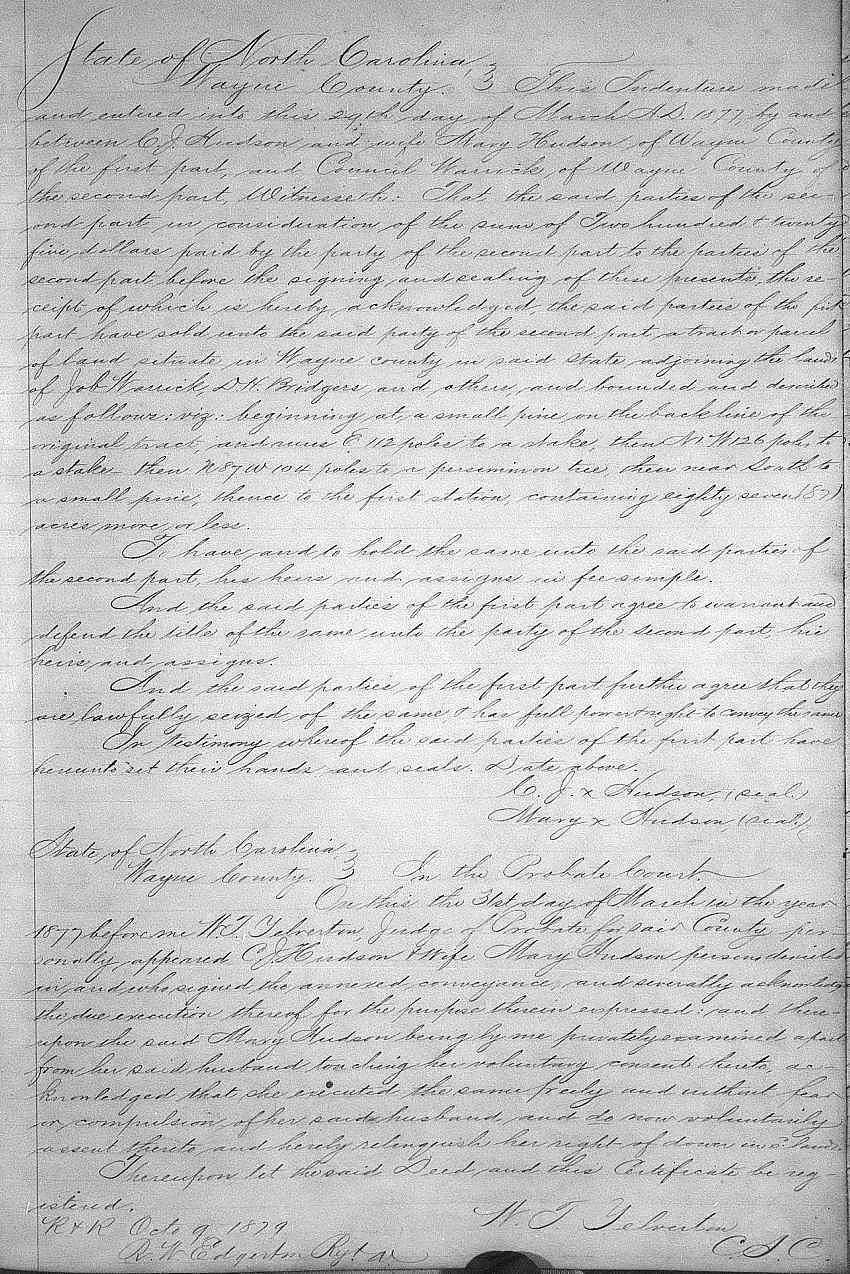 State of North Carolina,
Wayne County. } This Indenture made
and entered into this 29th day of March A.D. 1877 by and
between C J Hudson and wife Mary Hudson of Wayne County
of the first part, and Council Warrick of Wayne County of
the second part, Witnesseth: That the said parties of the sec-
ond part in consideration of the sum of Two hundred & twenty
five dollars paid by the party of the second part to the parties of the
second part before the signing and sealing of these presents, the re-
ceipt of which is hereby acknowledged, the said parties of the first
part have sold unto the said party of the second part, a tract or parcel
of land situate in Wayne county in said state adjoining the lands
of Job Warrick, D. H. Bridgers and others, and bounded and described
as follows: viz: beginning at, a small pine on the back line of the
original tract, and runs E 112 poles to a stake, then N 1 W 126 poles to
a stake - then N 87 W 104 poles to a persimmon tree, then near South to
a small pine, thence to the first station, containing eighty seven (87)
acres more or less.
To have and to hold the same unto the said parties of
the second part, his heirs and assigns in fee simple.
And the said parties of the first part agree to warrant and
defend the title of the same unto the party of the second part, his
heirs and assigns.
And the said parties of the first part further agree that they
are lawfully seized of the same & has full power & right to convey the same
In testimony whereof the said parties of the first part have
hereunto set their hands and seals. Date above.
C. J. x Hudson, (seal)
Mary x Hudson, (seal)
State of North Carolina,
Wayne County. } In the Probate Court.
On this the 31st day of March in the year
1877 before me W. T. Yelverton, Judge of Probate for said County per-
sonally appeared C J Hudson & Wife Mary Hudson persons described
in and who signed the annexed conveyance, and severally acknowledge
the due execution thereof for the purpose therein expressed: and there-
upon the said Mary Hudson being by me privately examined apart
from her said husband touching her voluntary consent thereto, ac-
knowledged that she executed the same freely and without fear
or compulsion of her said husband and do now voluntarily
assent thereto and hereby relenquish her right of dower in s land.
Thereupon let the said Deed and this Certificate be reg-
istered.
R & R Octo 9 1879
W. T Yelverton
R. W Edgerton
C. S. C.